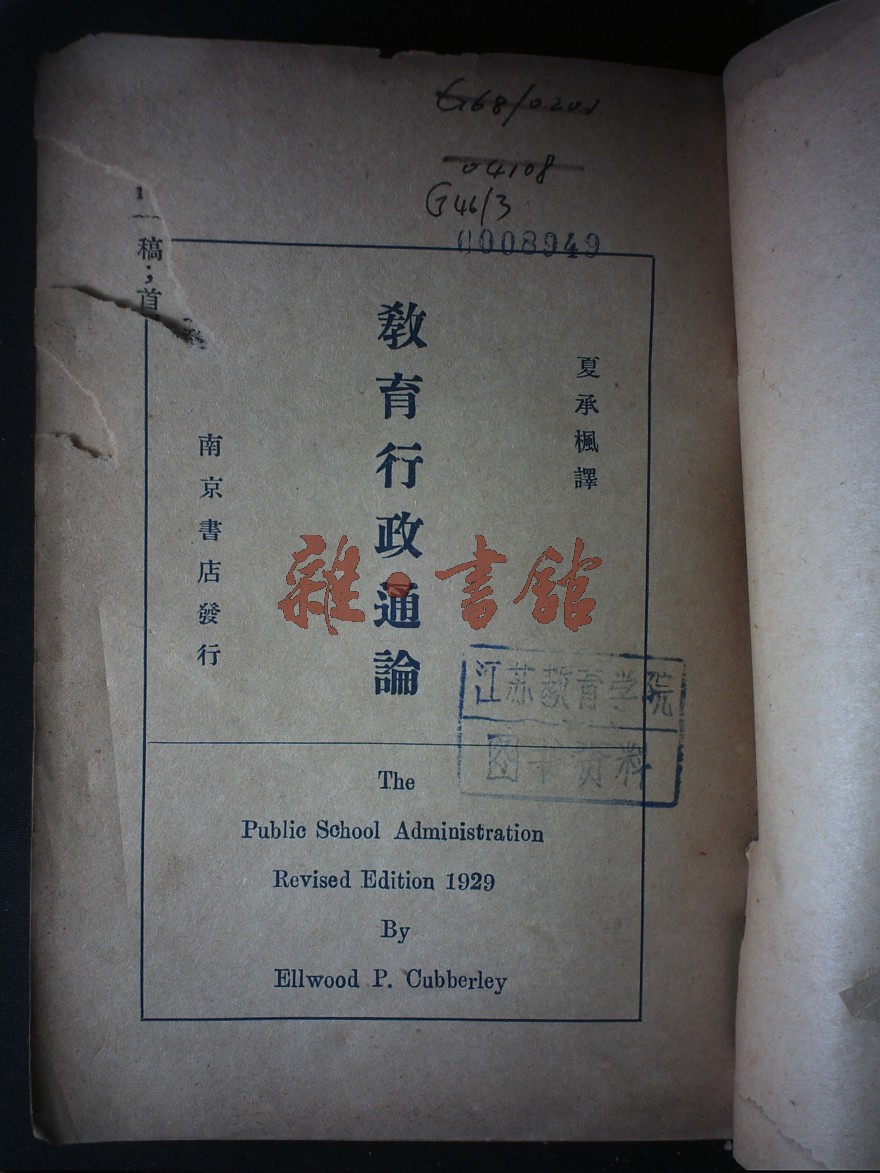 G68/0202
04108
G46/3
0008949
稿；首
夏承楓譯
教育行政通論
南京書店發行
雜·書館
江苏教育学院
图书资料
The
Public School Administration
Revised Edition 1929
By
Ellwood P. Cubberley